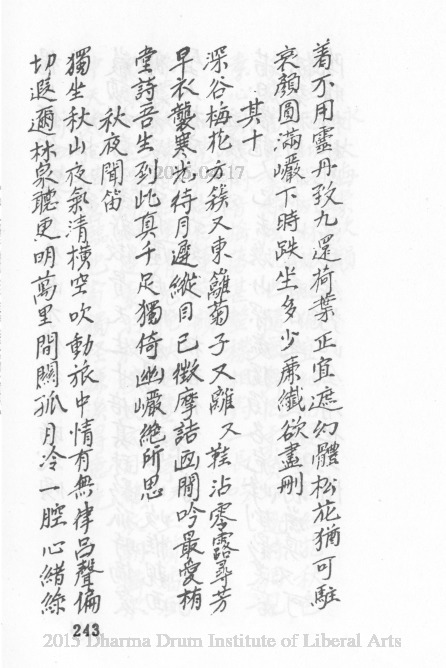 着不用靈丹致九還荷葉正宜遮幻體松花猶可駐
衰顏圓滿巖下時趺坐多少廉纖欲盡刪
其十
深谷梅花方發又東籬菊子又離又鞋沾零露尋芳
早衣襲寒光待月遲縱目已徵摩詰画閒吟最愛栯
堂詩吾生到此真千足獨倚幽巖絕所思
秋夜聞笛
獨坐秋山夜氣清橫空吹動旅中情有無律呂聲偏
切遐邇林泉聽更明萬里間關孤月冷一腔心緒絲
2015/04/17
243
2015 Dharma Drum Institute of Liberal Arts